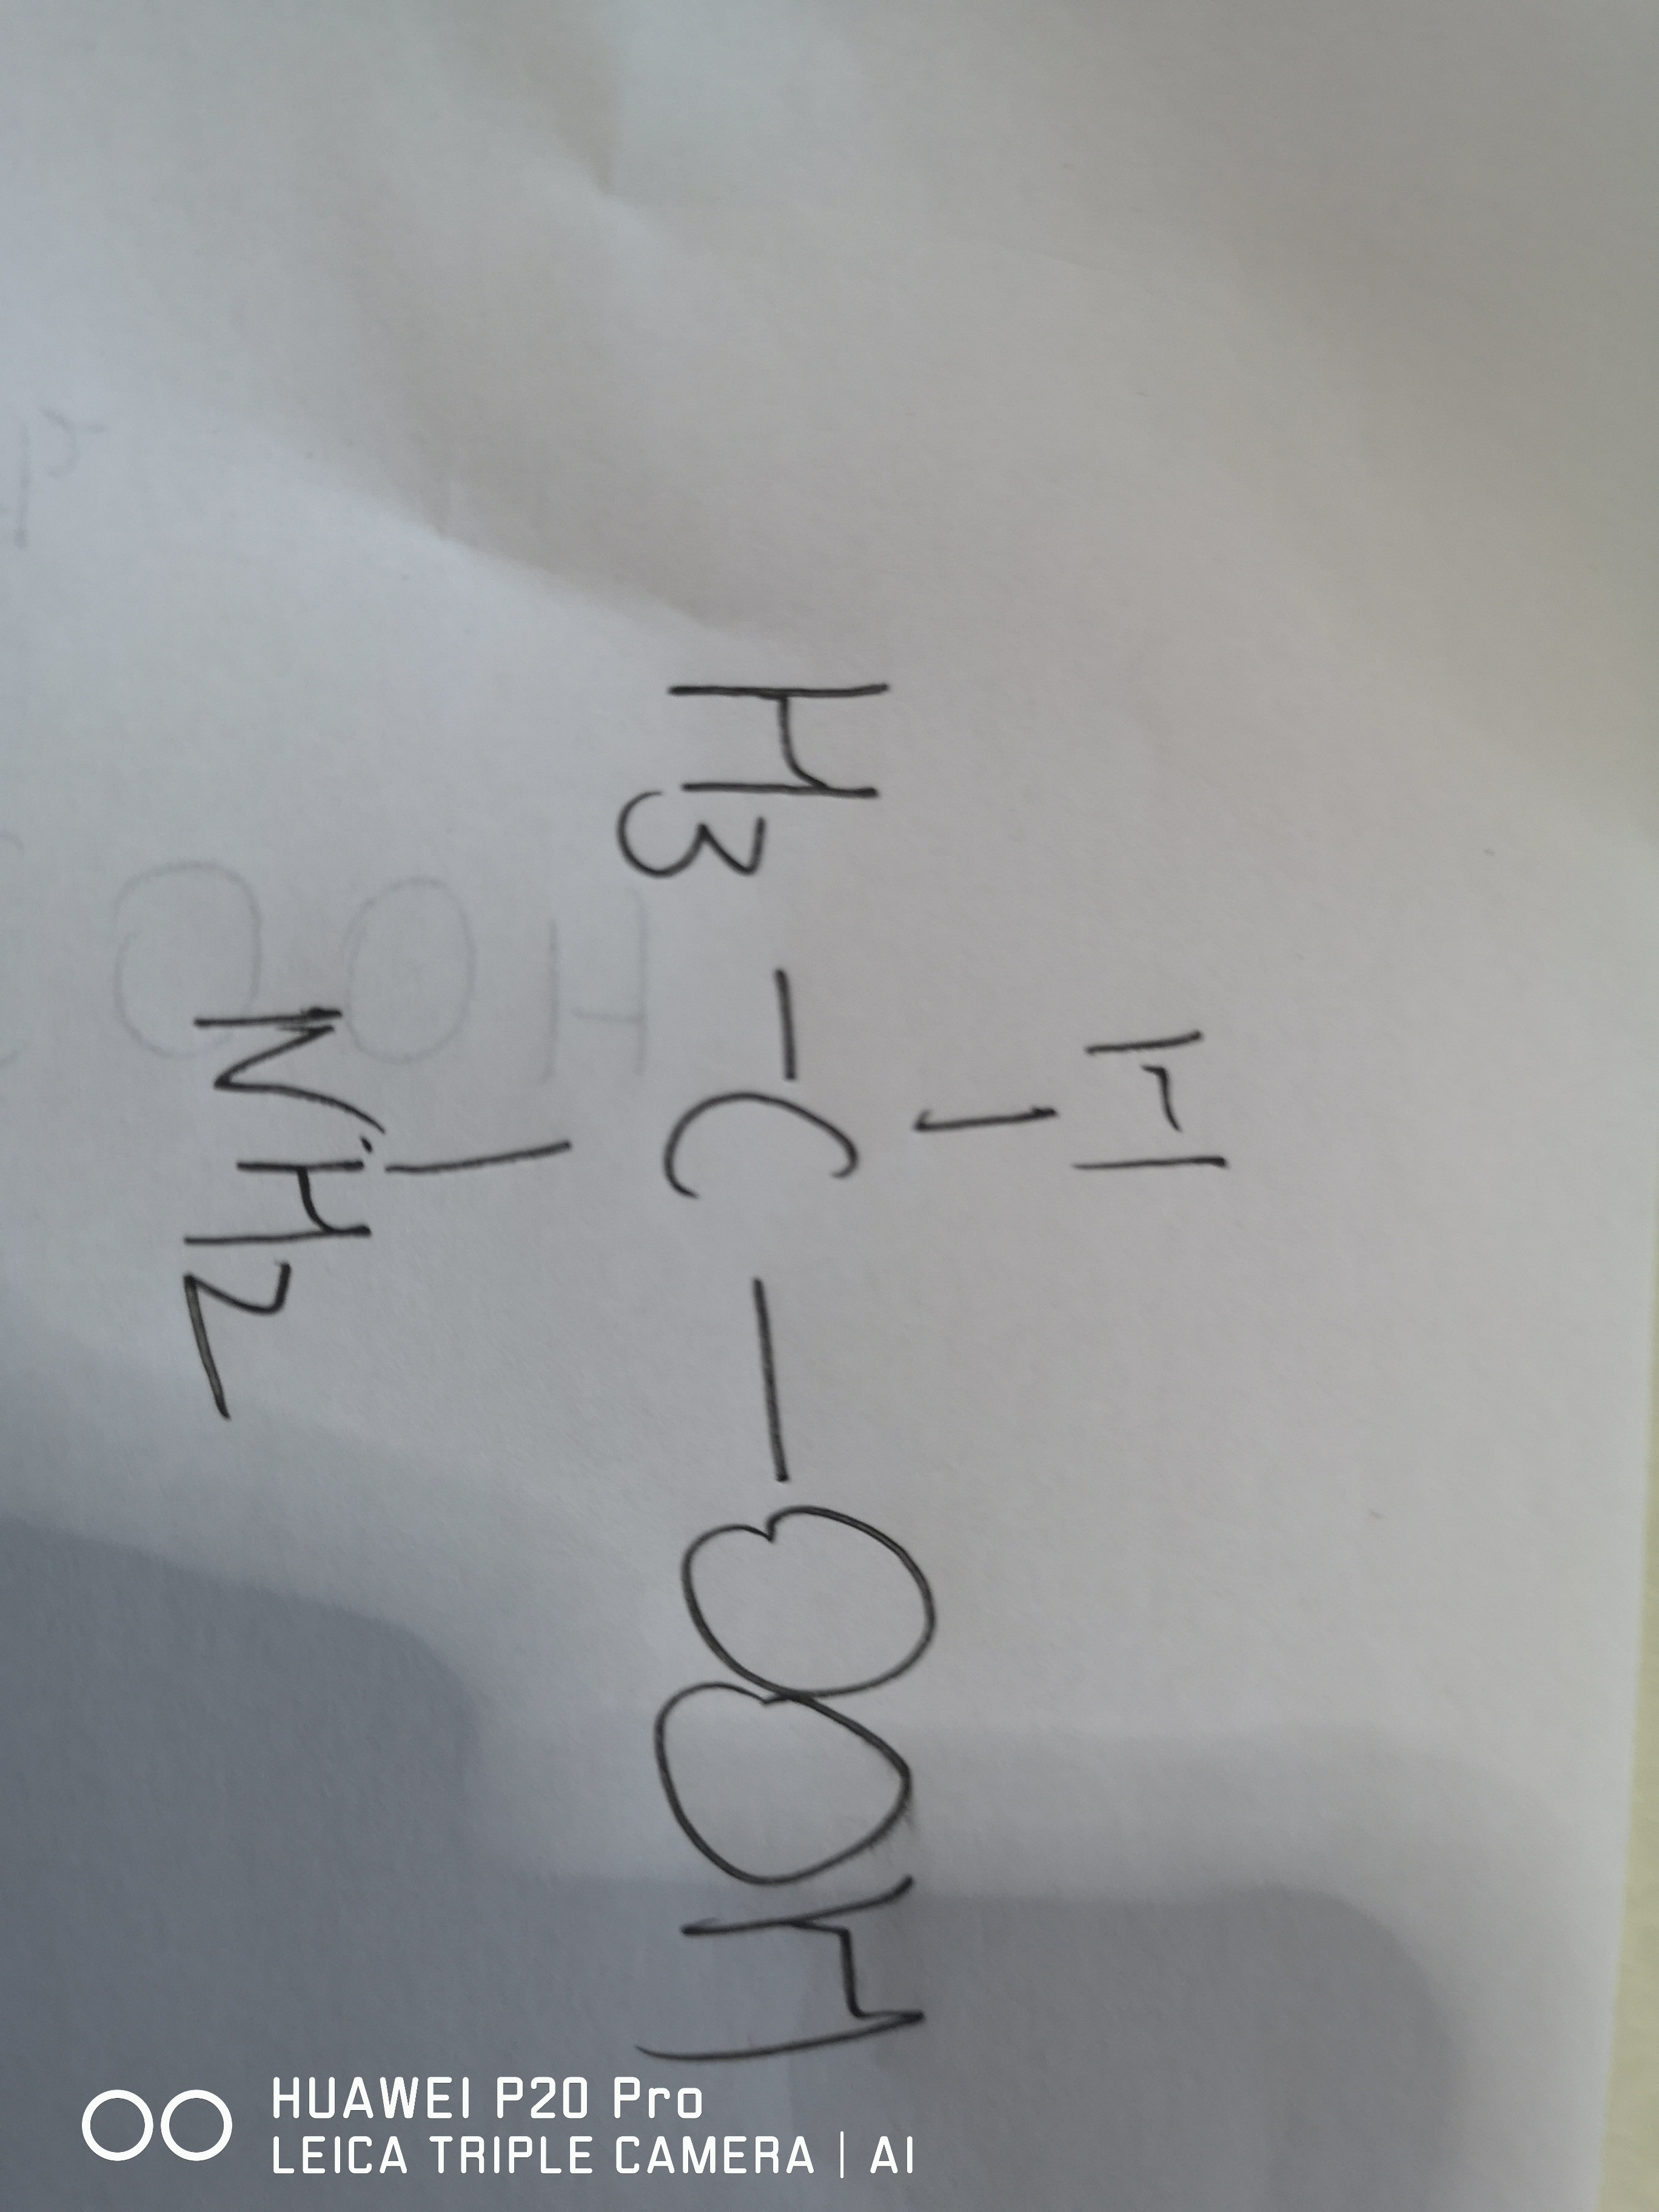 H
H3 - C - OOH
NH2
HUAWEI P20 Pro
LEICA TRIPLE CAMERA | AI